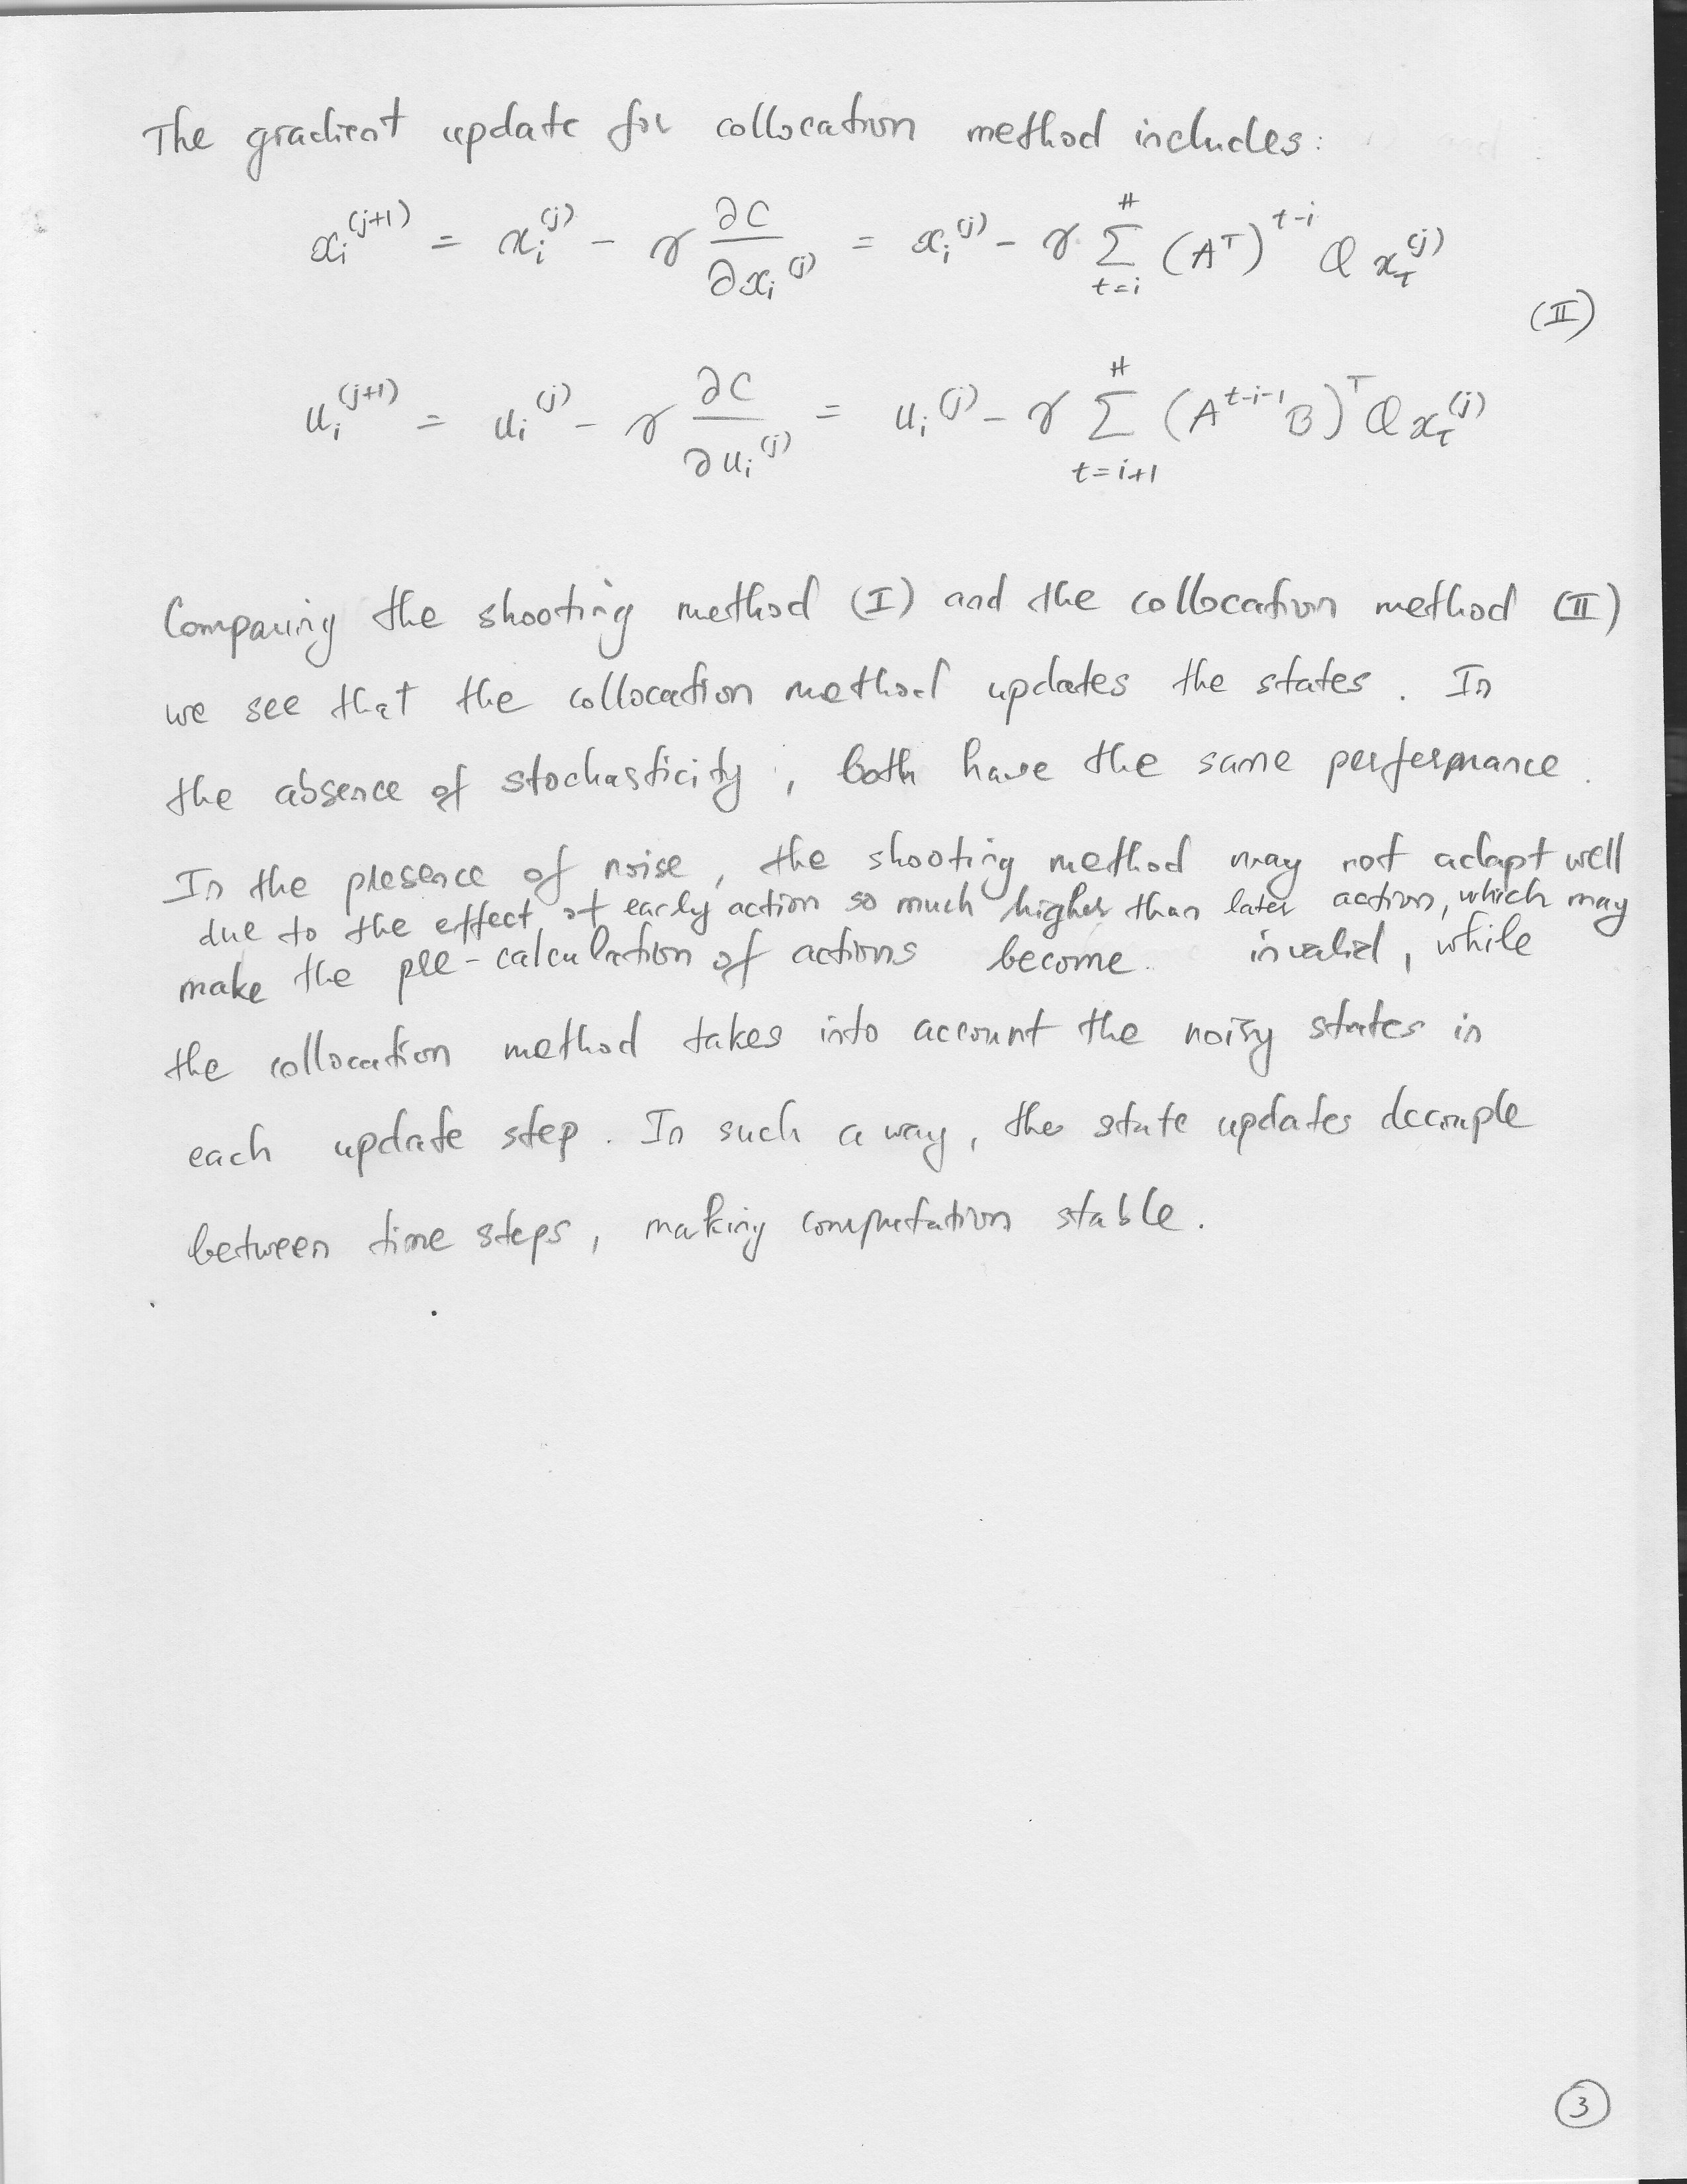 The gradient update for collocation method includes:
x_i^(j+1) = x_i^(j) - γ ∂C/∂x_i^(j) = x_i^(j) - γ Σ_{t=i}^{H} (A^T)^{t-i} Q x_t^(j)
(II)
u_i^(j+1) = u_i^(j) - γ ∂C/∂u_i^(j) = u_i^(j) - γ Σ_{t=i+1}^{H} (A^{t-i-1} B)^T Q x_t^(j)
Comparing the shooting method (I) and the collocation method (II)
we see that the collocation method updates the states. In
the absence of stochasticity, both have the same performance.
In the presence of noise, the shooting method may not adapt well
due to the effect of early action so much higher than later action, which may
make the pre-calculation of actions become invalid, while
the collocation method takes into account the noisy states in
each update step. In such a way, the state updates decouple
between time steps, making computation stable.
3